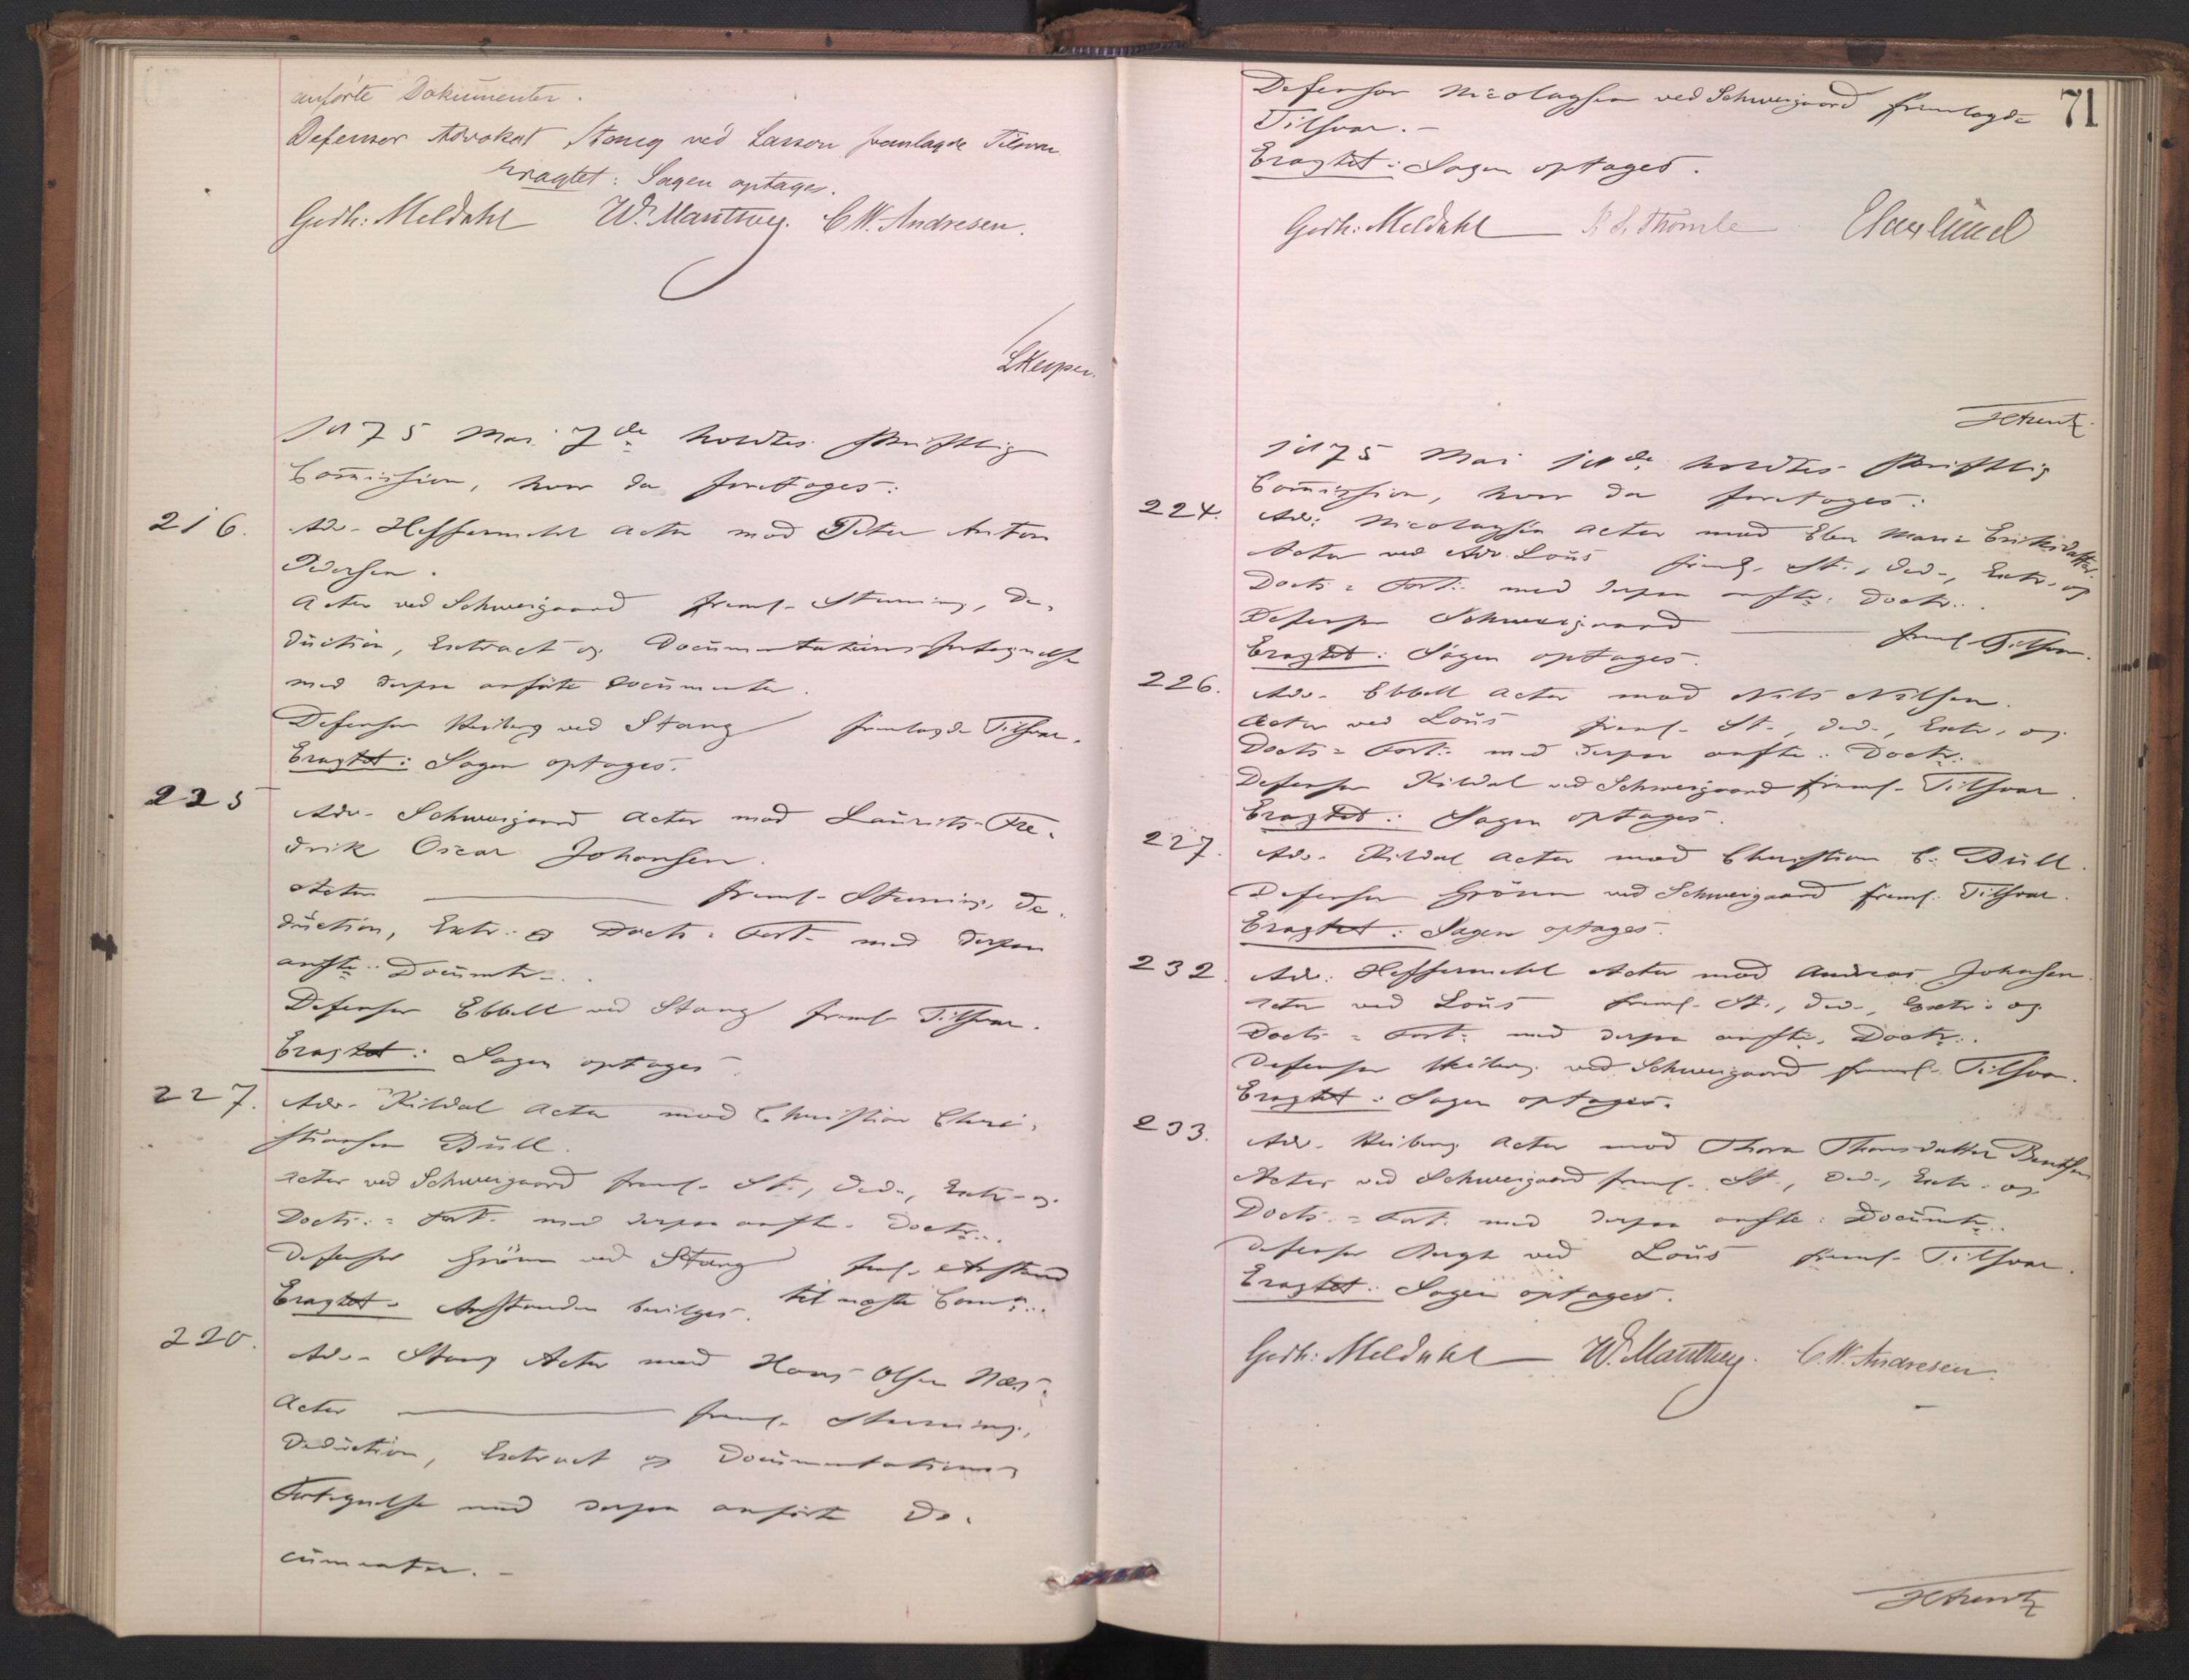 anförte Dokumenter.
Defensor Advokat Stang ved Larson fremlagde Tilsvar.
Eragtet: Sagen optages.
Gedh: Meldahl W. Manthey. C. W. Andresen.
1875 Mai 7de holdtes skriftlig
Commission, hvor da foretoges:
216. Adv. Heffermehl Actor mod Peter Anton
Pedersen.
Actor ved Schweigaard freml. Stevning, De-
duction, Extract og Documentationsfortegnelse
med derpaa anførte Documenter.
Defensor Heiberg ved Stang fremlagde Tilsvar.
Eragtet: Sagen optages.
225 Adv. Schweigaard Actor mod Laurits Fre-
drik Oscar Johansen.
Actor freml. Stevning, De-
duction, Extr. og Docts. Fort. med derpaa
anfte. Documtr..
Defensor Ebbell ved Stang freml. Tilsvar.
Eragtet: Sagen optages
227. Adv. Kildal Actor mod Christian Chri-
stiansen Büll.
Actor ved Schweigaard freml. St., Ded., Extr. og
Docts. = Fort. med derpaa anfte. Doctr...
Defensor Grönn ved Stang Anstand
Eragtet. Anstanden bevilges. til næste Comm...
220. Adv. Stang Actor mod Hans Olsen Næs.
Actor freml. Stevning,
Deduction, Extract og Documentations
Fortegnelse med derpaa anførte Do-
cumenter. -
71
Defensor Nicolaysen ved Schweigaard fremlagde
Tilsvar. -
Eragtet: Sagen optages.
Gedh: Meldahl
1875 Mai 18de holdtes skriftlig
Commission, hvor da foretoges:
224. Adv. Nicolaysen Actor mod Elen Marie Eriksdatter.
Actor ved Adv. Loüs freml. St., Ded., Extr. og
Docts = Fort. med derpaa anfte. Doctr..
Defensor Schweigaard freml. Tilsvar.
Eragtet: Sagen optages.
226. Adv. Ebbell Actor mod Nils Nilsen.
Actor ved Loüs freml. St., Ded., Extr. og
Docts = Fort. med derpaa anfte. Doctr..
Defensor Kildal ved Schweigaard freml. Tilsvar.
Eragtet: Sagen optages.
227. Adv. Kildal Actor mod Christian C. Büll.
Defensor Grönn ved Schweigaard freml. Tilsvar.
Eragtet: Sagen optages.
232. Adv. Heffermehl Actor mod Andreas Johnsen.
Actor ved Loüs freml. St., Ded., Extr. og
Docts = Fort. med derpaa anfte. Doctr..
Defensor Heiberg ved Schweigaard freml. Tilsvar.
Eragtet: Sagen optages.
233. Adv. Heiberg Actor mod Thora Thorsdatter Bentsen
Actor ved Schweigaard freml. St., Ded., Extr. og
Docts. = Fort. med derpaa anfte. Documtr..
Defensor Bergh ved Loüs freml. Tilsvar.
Eragtet: Sagen optages.
Gedh: Meldahl W. Manthey. C. W. Andresen.